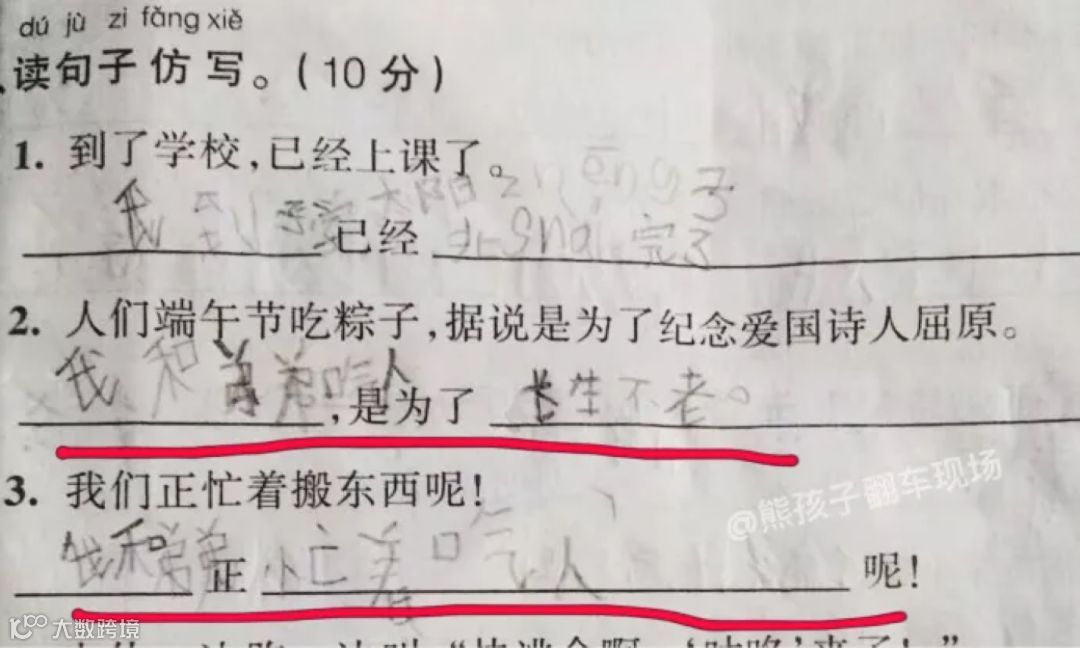 dú jù zi fǎng xiě
读句子仿写。(10分)
1. 到了学校,已经上课了。
我到 已经 完了
2. 人们端午节吃粽子,据说是为了纪念爱国诗人屈原。
我和弟弟吃人,是为了长生不老。
3. 我们正忙着搬东西呢!
@熊孩子翻车现场
我和弟弟正忙着吃人呢!
大数跨境